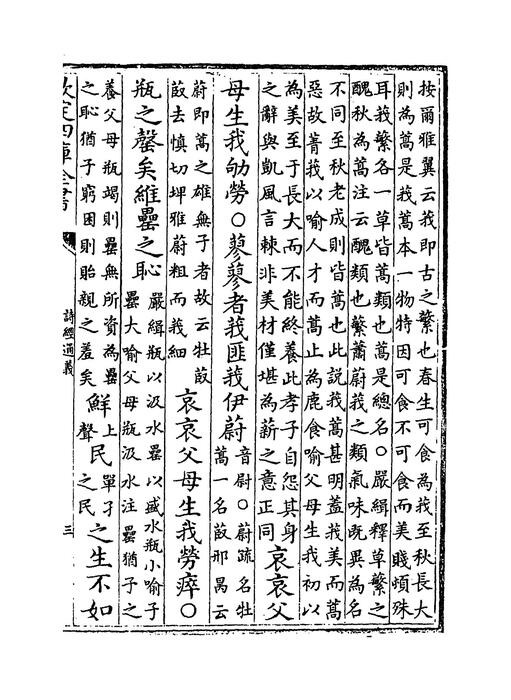 按爾雅翼云莪即古之蘩也春生可食為莪至秋長大
則為蒿是莪蒿本一物特因可食不可食而美賤頓殊
耳莪蘩各一草皆蒿類也蒿是總名○嚴緝釋草蘩之
醜秋為蒿注云醜類也蘩蕭蔚莪之類氣味既異為名
不同至秋老成則皆蒿也此說莪蒿甚明蓋莪美而蒿
惡故菁莪以喻人才而蒿止為鹿食喻父母生我初以
為美至于長大而不能終養此孝子自怨其身
之辭與凱風言棘非美材僅堪為薪之意正同
哀哀父
母生我劬勞○蓼蓼者莪匪莪伊蔚
音尉○蔚疏名牡
蒿一名菣邢昺云
蔚即蒿之雄無子者故云牡菣
菣去慎切埤雅蔚粗而莪細
哀哀父母生我勞瘁○
瓶之罄矣維罍之恥
嚴緝瓶以汲水罍以盛水瓶小喻子
罍大喻父母瓶汲水注罍猶子之
養父母瓶竭則罍無所資為罍
之恥猶子窮困則貽親之羞矣
鮮
上
聲
民
單孑
之民
之生不如
欽定四庫全書
詩經通義
三